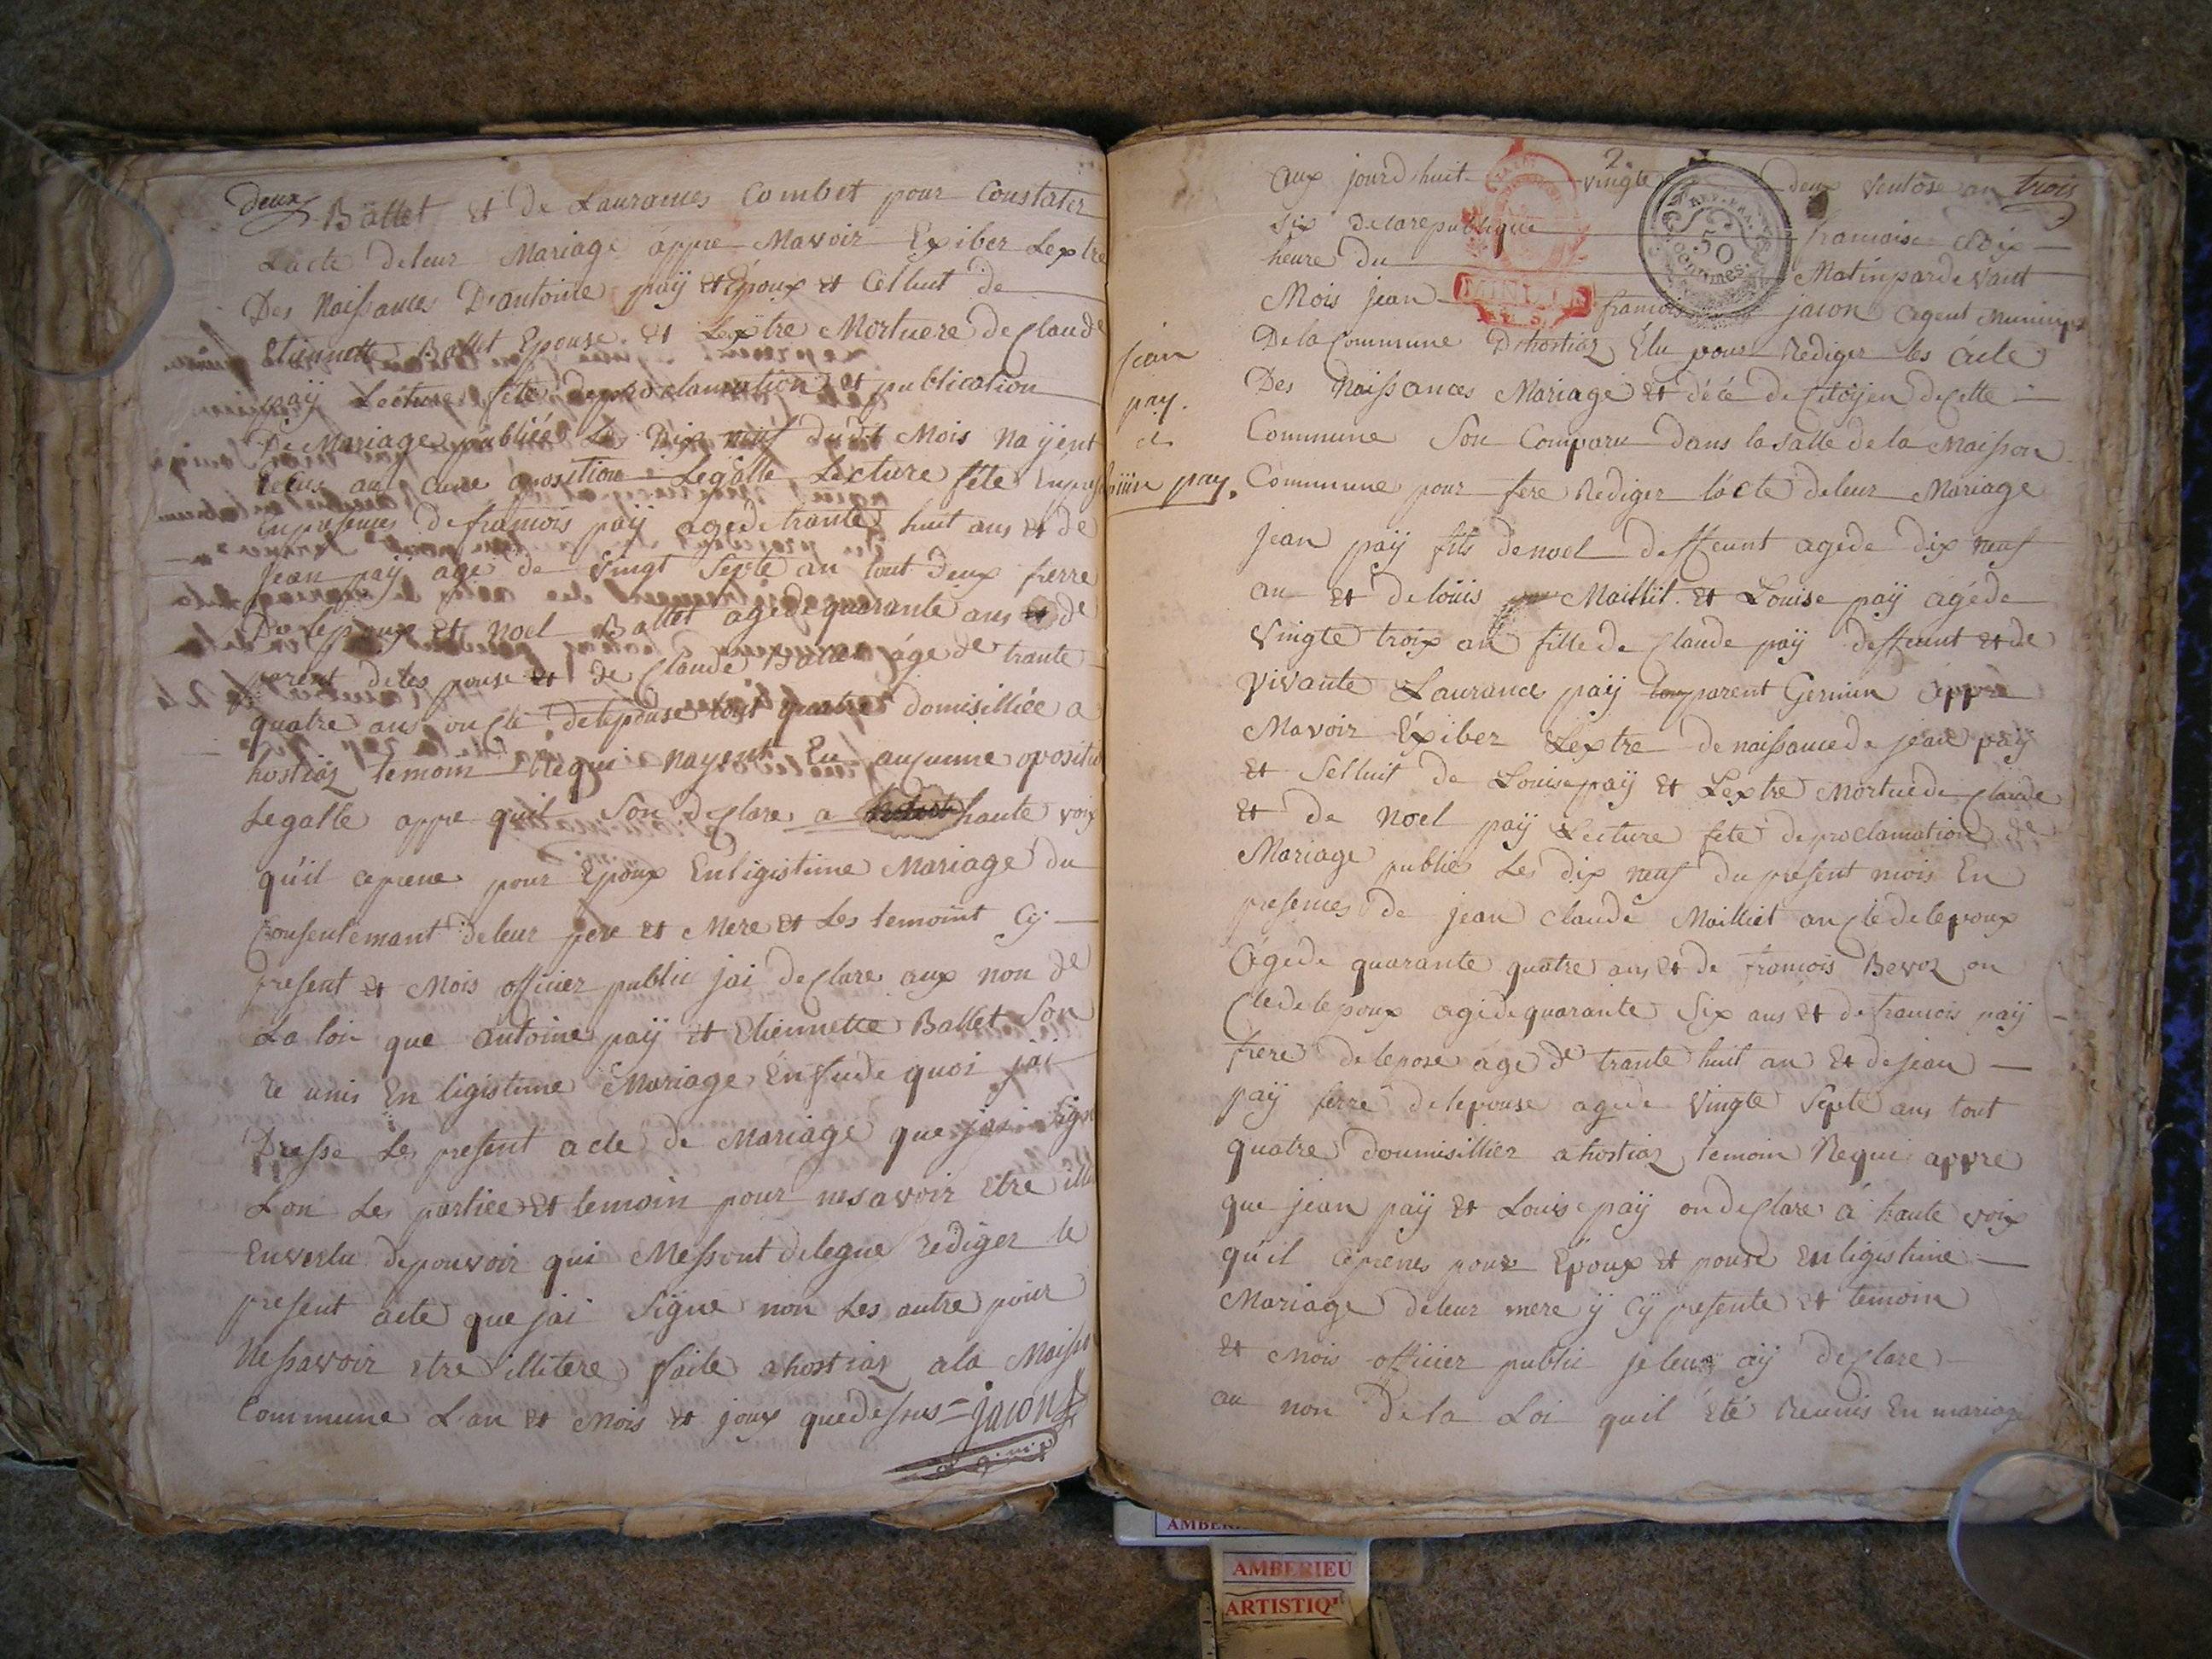 deux
Ballet et de Laurances Combet pour Constater
Lacte deleur Mariage appre Mavoir Exiber Lextre
Des Naissances D'antoine paÿ et Epoux et Celluit de
Etiennette Ballet Epouse et Lextre Mortuere de Claude
paÿ Lecture fete de proclamation et publication
De Mariage publiée Les Dix neuf dudit Mois Nayent
au cune oposition Legalle Lecture fete
En presences de francois paÿ agé de trante huit ans et de
Jean paÿ age de vingt Septe an tout Deux frerre
De lepoux et Noel Ballet age de quarante ans et de
parent deles pouse et de Claude Ballet áge de trante
quatre ans oncle delepouse tout quatre domisilliée a
hostiaz temoin Requi nayent Eu aucunne opositi
Legalle appre quil Son declare a haute voix
qu'il ceprene pour Epoux Enligistime Mariage du
Consentemant deleur pere et Mere et Les temoint Cy
present et Mois officier public jai declare aux non de
La loi que antoine paÿ et Etiennette Ballet Son
re unis En ligistime Mariage En foide quoi jai
Dresse Les present acte de Mariage que jai Signe
Lon Les partiée et temoin pour nesavoir Etre
Envertu depouvoir qui Messont delegue rediger le
present acte que jai Signe non Les autre pour
Nessavoir etre illitere faite a hostiaz ala Maiss
Commune L'an et Mois et jour quedesus = jacon
2
aux jourd huit vingte deux ventose an trois
Six delarepublique francoise Dix
heure du Matin pardevant
Mois Jean francois jacon agent Municip
De la Commune D'hostiaz Élu pour Rediger les acte
Des Naissances Mariage et décé de Citoÿen de Cette
Commune Son Comparu Dans la Salle de la Maisson
Commune pour fere Rediger lácte deleur Mariage
jean
paÿ.
et
Louise paÿ.
jean paÿ fils denoel deffeunt agede dix neuf
an et delouis Maillit et Louise paÿ ágéde
Vingte troix an fille de Claude paÿ deffeunt et de
vivante Laurance paÿ parent Germin appre
Mavoir Exiber Lextre de naissancede jean paÿ
et Selluit de Louise paÿ et Lextre Mortuede Claude
et de Noel paÿ Lecture fete deproclamation de
Mariage publie Les dix neuf du present mois En
presences de jean claude Mailliet oncle delepoux
agede quarante quatre ans et de francois Bevoz on
Cledelepoux agedequarante Six ans et de francois paÿ
frere delepose age de trante huit an et dejean
paÿ ferre delepouse agede Vingte Septe ans tout
quatre doumisillier ahostiaz temoin Requi appre
que jean paÿ et Louise paÿ on declare á haute voix
qu'il ceprenes pour Epoux et pouse En ligistime
Mariage deleur mere ÿ cÿ presente et temoin
et Mois officier public je leur aÿ declare
au non de la Loi quil été Reunis En mariage
REP. FRA.
50
Centimes
AMBERIEU
ARTISTIQ